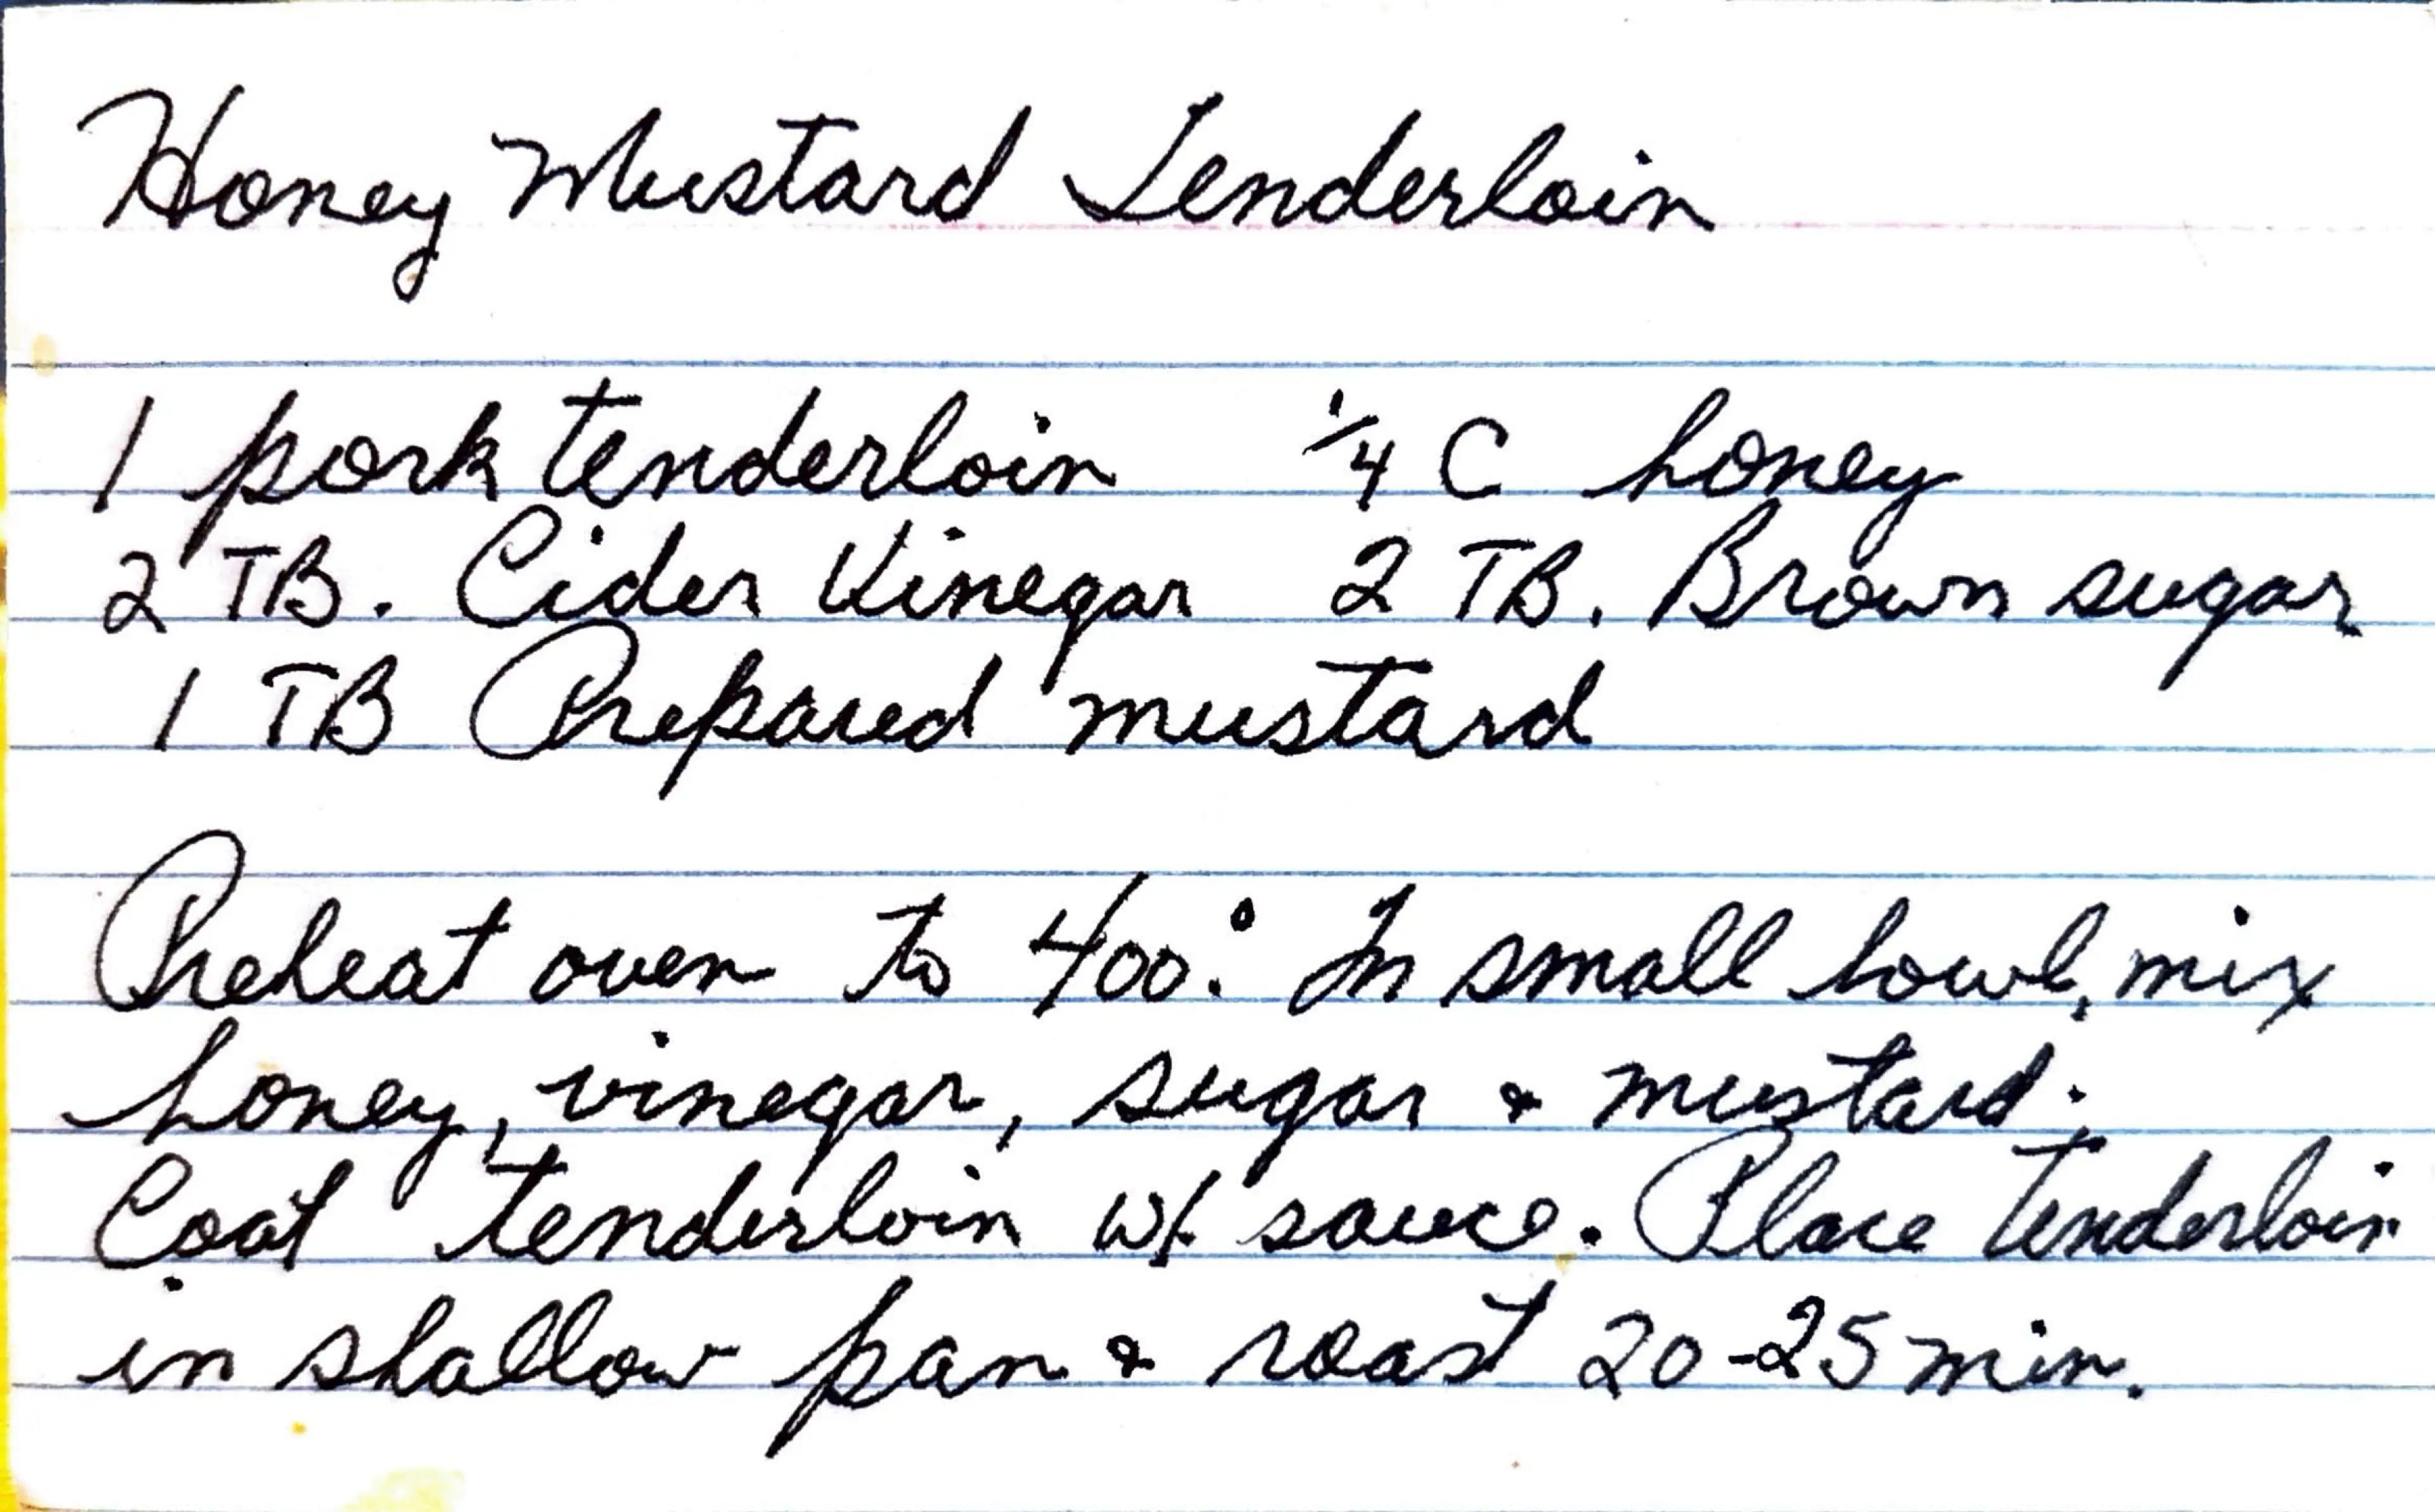 Honey Mustard Tenderloin
1 pork tenderloin 1/4 C honey
2 TB. Cider Vinegar 2 TB. Brown sugar
1 TB Prepared mustard
Preheat oven to 400°. In small bowl, mix
honey, vinegar, sugar & mustard.
Coat tenderloin w/ sauce. Place tenderloin
in shallow pan & roast 20-25 min.